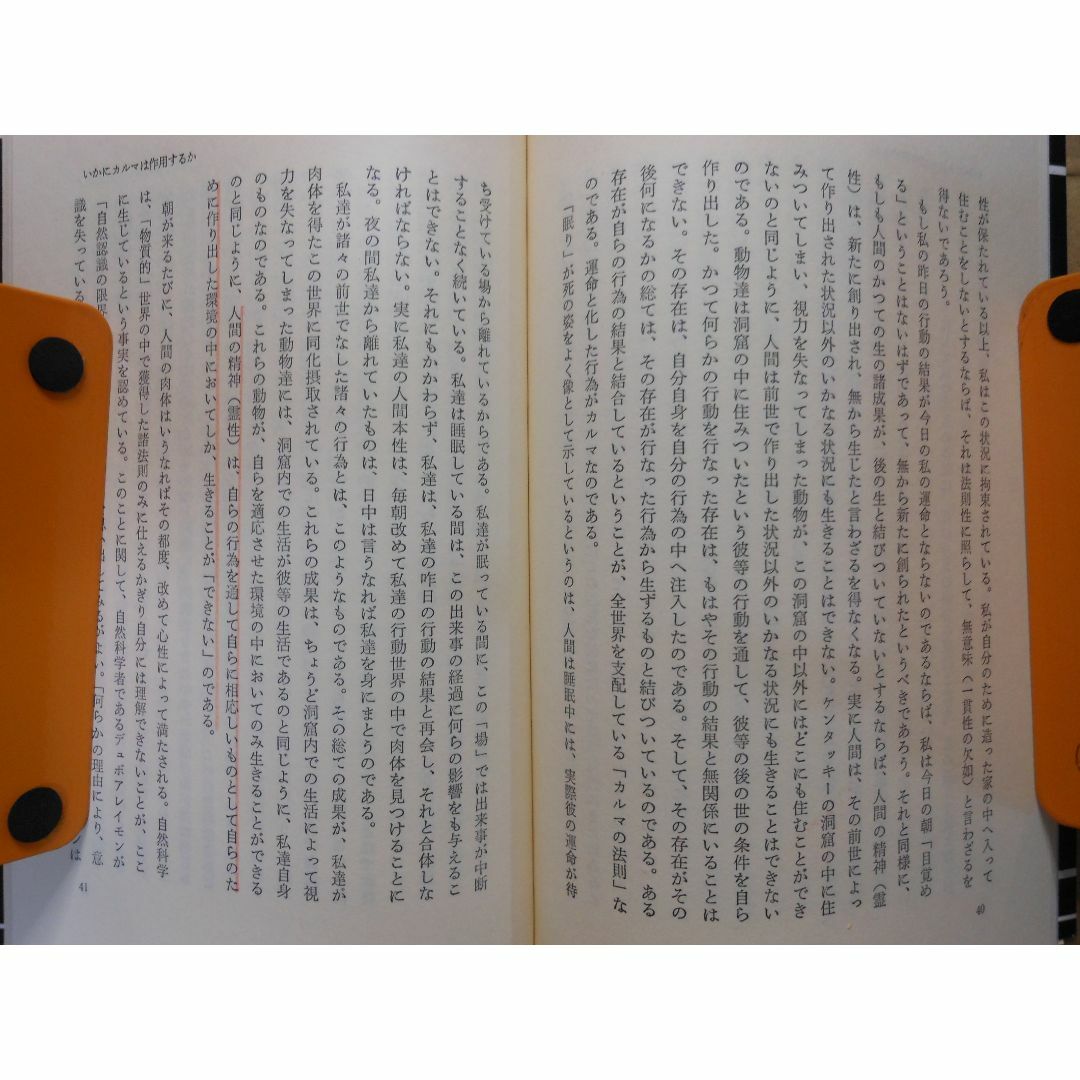 性が保たれている以上、私はこの状況に拘束されている。私が自分のために造った家の中へ入って
住むことをしないとするならば、それは法則性に照らして、無意味（一貫性の欠如）と言わざるを
得ないであろう。
もし私の昨日の行動の結果が今日の私の運命とならないのであるならば、私は今日の朝「目覚め
る」ということはないはずであって、無から新たに創られたというべきであろう。それと同様に、
もしも人間のかつての生の諸成果が、後の生と結びついていないとするならば、人間の精神（霊
性）は、新たに創り出され、無から生じたと言わざるを得なくなる。実に人間は、その前世によっ
て作り出された状況以外のいかなる状況にも生きることはできない。ケンタッキーの洞窟の中に住
みついてしまい、視力を失なってしまった動物が、この洞窟の中以外にはどこにも住むことができ
ないのと同じように、人間は前世で作り出した状況以外のいかなる状況にも生きることはできない
のである。動物達は洞窟の中に住みついたという彼等の行動を通して、彼等の後の世の条件を自ら
作り出した。かつて何らかの行動を行なった存在は、もはやその行動の結果と無関係にいることは
できない。その存在は、自分自身を自分の行為の中へ注入したのである。そして、その存在がその
後何になるかの総ては、その存在が行なった行為から生ずるものと結びついているのである。ある
存在が自らの行為の結果と結合しているということが、全世界を支配している「カルマの法則」な
のである。運命と化した行為がカルマなのである。
「眠り」が死の姿をよく像として示しているというのは、人間は睡眠中には、実際彼の運命が待
40
ち受けている場から離れているからである。私達が眠っている間に、この「場」では出来事が中断
することなく続いている。私達は睡眠している間は、この出来事の経過に何らの影響をも与えるこ
とはできない。それにもかかわらず、私達は、私達の昨日の行動の結果と再会し、それと合体しな
ければならない。実に私達の人間本性は、毎朝改めて私達の行動世界の中で肉体を見つけることに
なる。夜の間私達から離れていたものは、日中は言うなれば私達を身にまとうのである。
私達が諸々の前世でなした諸々の行為とは、このようなものである。その総ての成果が、私達が
肉体を得たこの世界に同化摂取されている。これらの成果は、ちょうど洞窟内での生活によって視
力を失なってしまった動物達には、洞窟内での生活が彼等の生活であるのと同じように、私達自身
のものなのである。これらの動物が、自らを適応させた環境の中においてのみ生きることができる
のと同じように、人間の精神（霊性）は、自らの行為を通して自らに相応しいものとして自らのた
めに作り出した環境の中においてしか、生きることが「できない」のである。
朝が来るたびに、人間の肉体はいうなればその都度、改めて心性によって満たされる。自然科学
は、「物質的」世界の中で獲得した諸法則のみに仕えるかぎり自分には理解できないことが、ここ
に生じているという事実を認めている。このことに関して、自然科学者であるデュボアレイモンが
「自然認識の限界 てみるがよい。「何らかの理由により、意
識を失っている
いかにカルマは作用するか
41